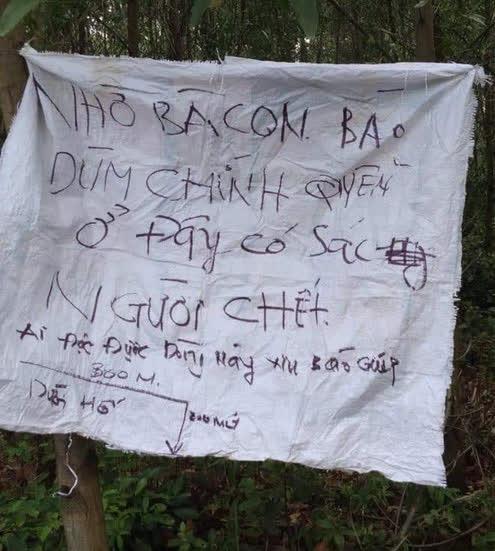 NHỜ BÀ CON BÁO
DÙM CHÍNH QUYỀN
Ở ĐÂY CÓ SÁC
NGƯỜI CHẾT.
Ai Đọc Được Dòng Này Xin Báo Giúp
300 M.